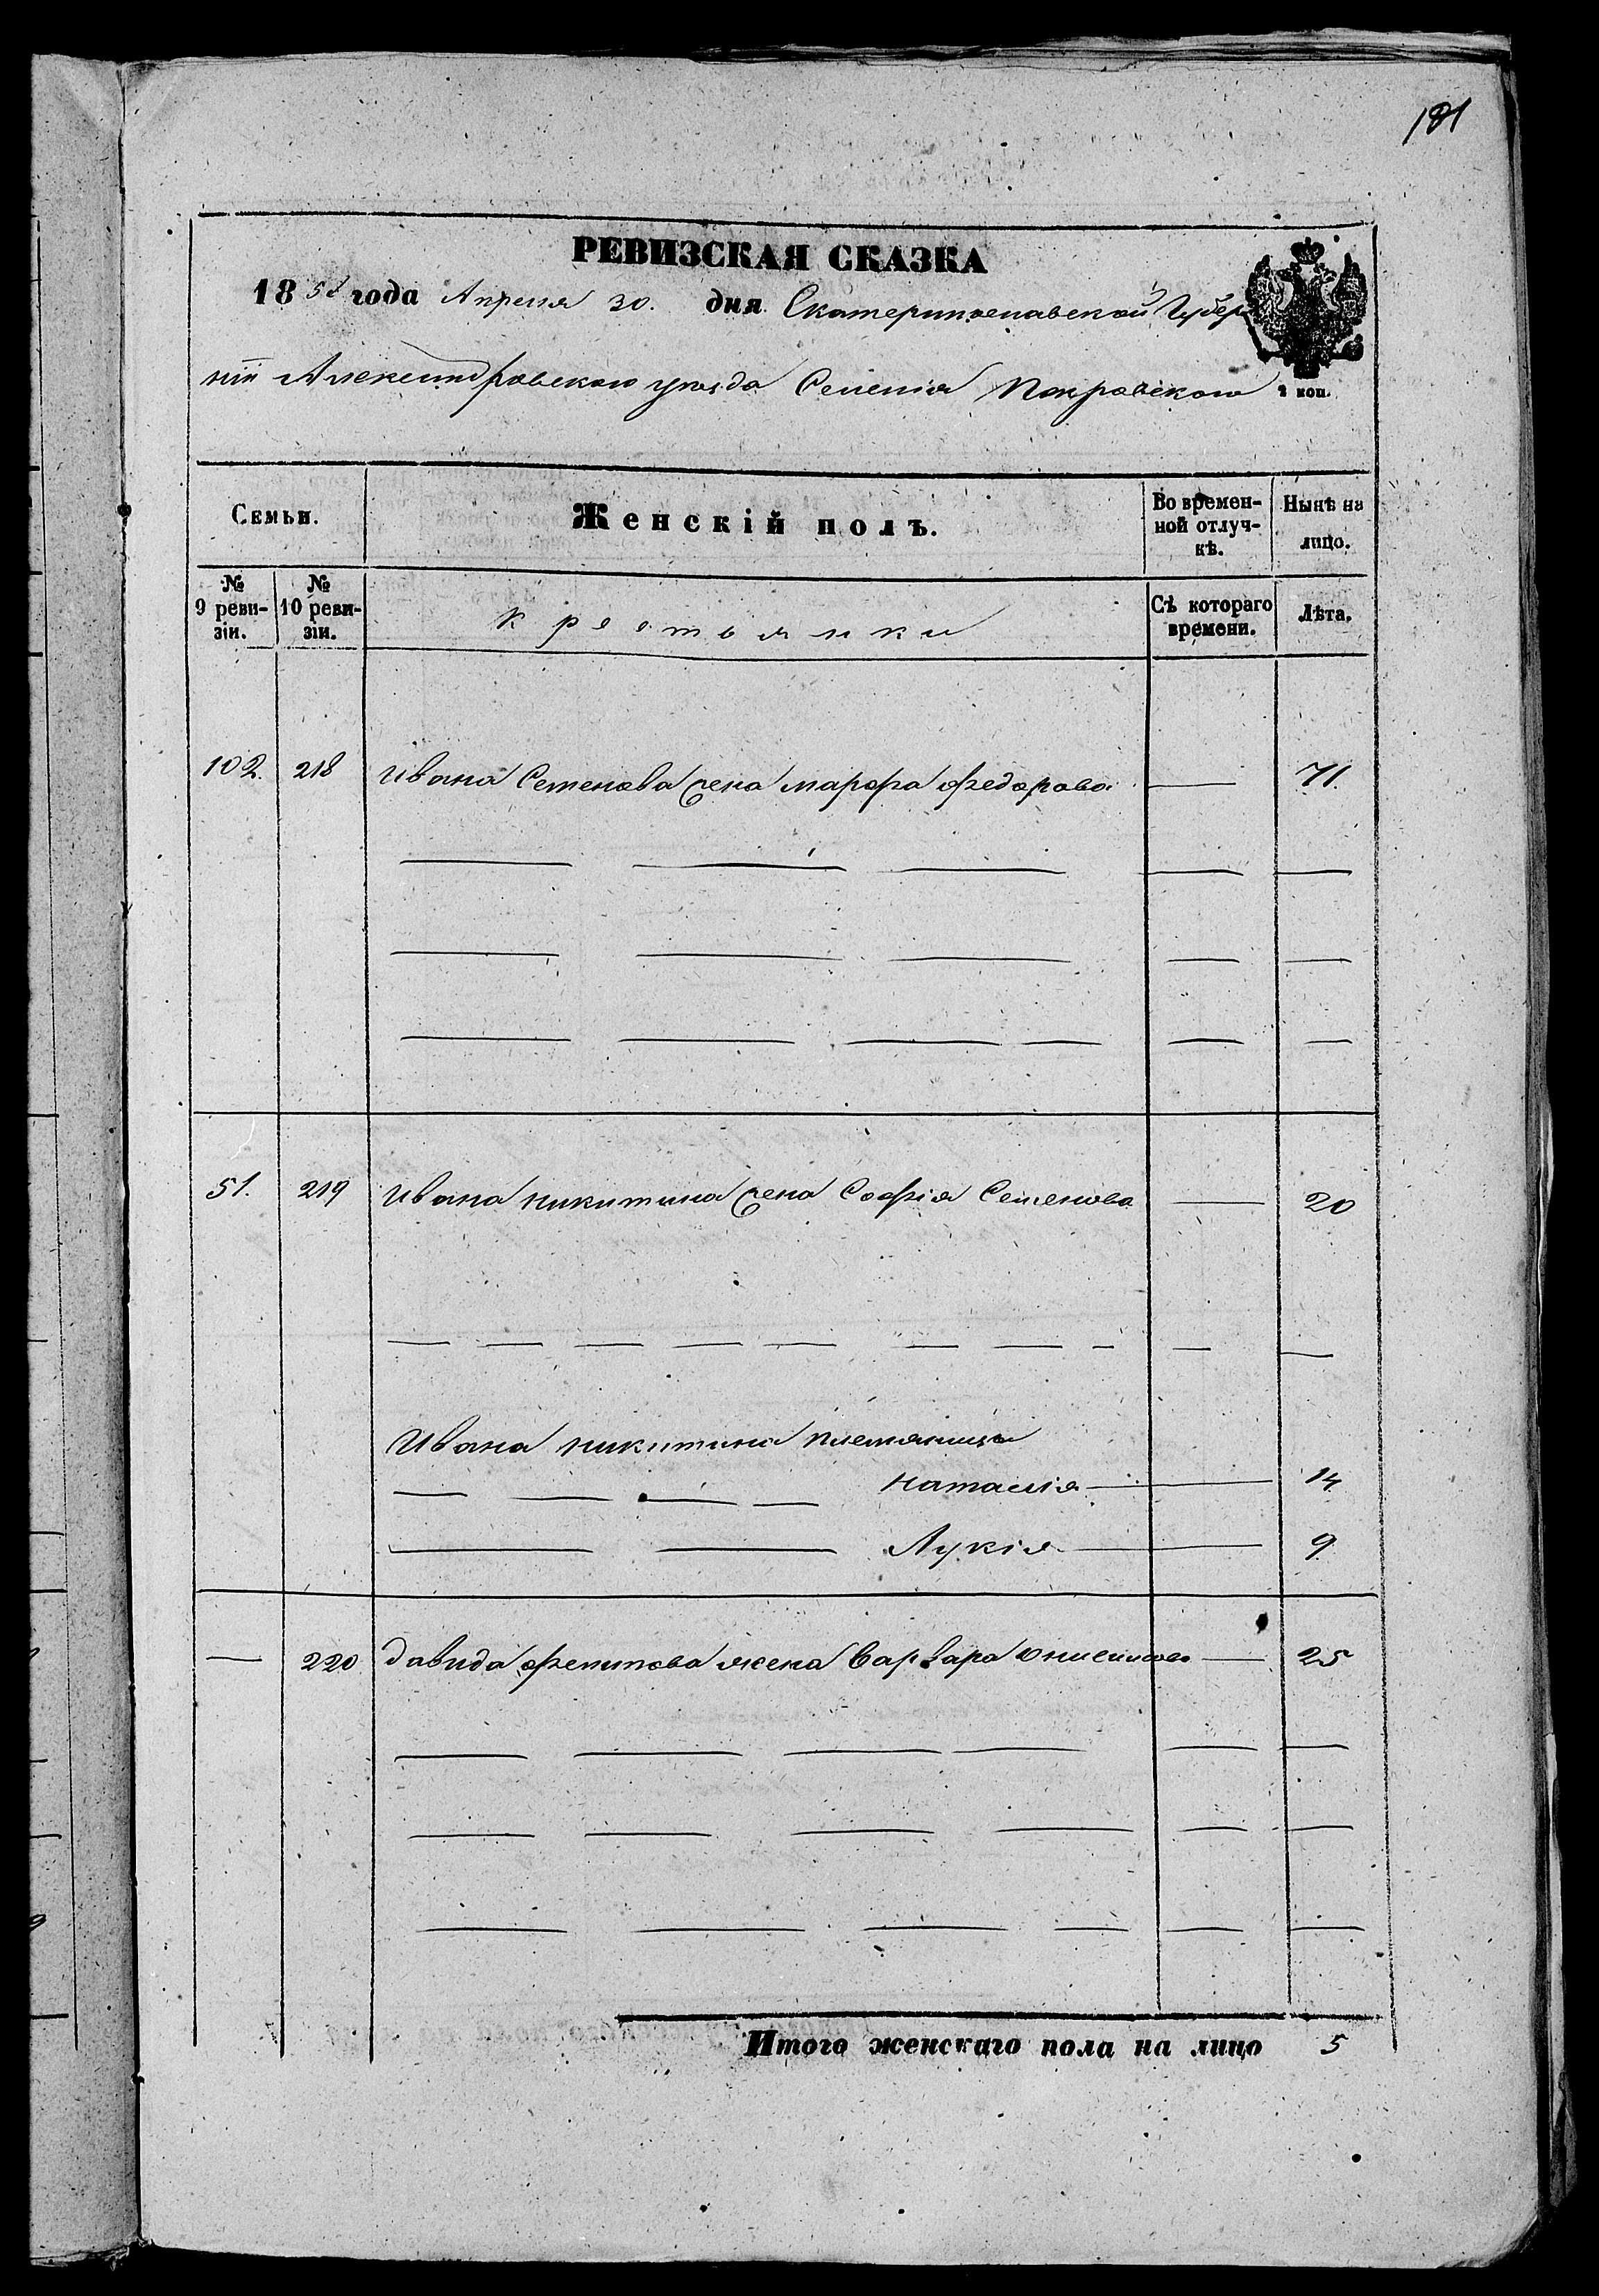 181
РЕВИЗСКАЯ СКАЗКА
1858 года Апреля 30. дня Екатеринославской Губер
ніи Александровского уѣзда Селенія Покровского
2 коп.
Семьи.
Женскій полъ.
Во времен-
ной отлуч-
кѣ.
Нынѣ на
лицо.
№
9 реви-
зіи.
№
10 реви-
зіи.
Крестьянки
Съ котораго
времени.
Лѣта.
102. 218 Ивана Семенова жена Марфа Федорова — 71.
51. 219 Ивана Никитина жена Софія Семенова — 20
Ивана Никитина племяницы
Наталія — 14
Лукія — 9
— 220 Давида Фелипова жена Варвара — 25
Итого женскаго пола на лицо 5